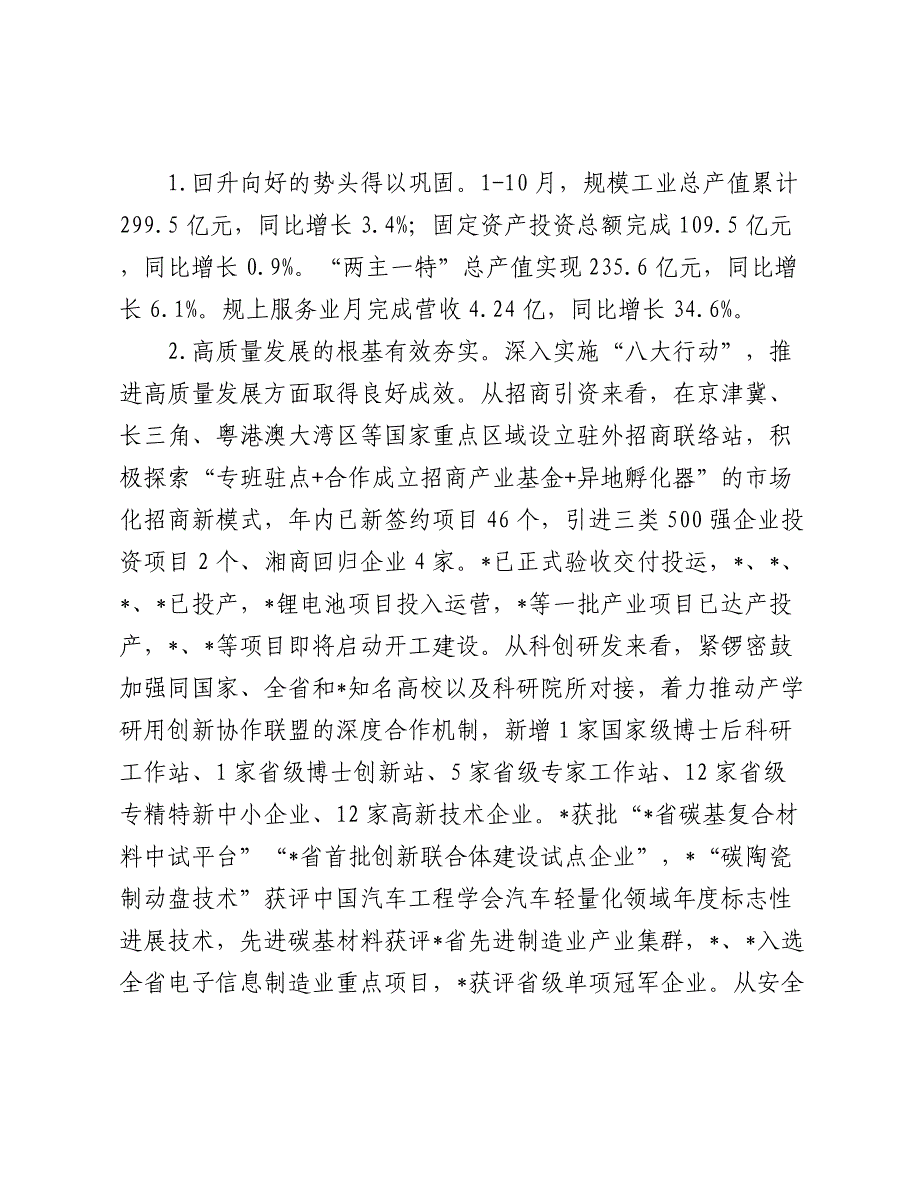 1.回升向好的势头得以巩固。1-10月，规模工业总产值累计
299.5亿元，同比增长3.4%；固定资产投资总额完成109.5亿元
，同比增长0.9%。“两主一特”总产值实现235.6亿元，同比增
长6.1%。规上服务业月完成营收4.24亿，同比增长34.6%。
2.高质量发展的根基有效夯实。深入实施“八大行动”，推
进高质量发展方面取得良好成效。从招商引资来看，在京津冀、
长三角、粤港澳大湾区等国家重点区域设立驻外招商联络站，积
极探索“专班驻点+合作成立招商产业基金+异地孵化器”的市场
化招商新模式，年内已新签约项目46个，引进三类500强企业投
资项目2个、湘商回归企业4家。*已正式验收交付投运，*、*、
*、*已投产，*锂电池项目投入运营，*等一批产业项目已达产投
产，*、*等项目即将启动开工建设。从科创研发来看，紧锣密鼓
加强同国家、全省和*知名高校以及科研院所对接，着力推动产学
研用创新协作联盟的深度合作机制，新增1家国家级博士后科研
工作站、1家省级博士创新站、5家省级专家工作站、12家省级
专精特新中小企业、12家高新技术企业。*获批“*省碳基复合材
料中试平台”“*省首批创新联合体建设试点企业”，*“碳陶瓷
制动盘技术”获评中国汽车工程学会汽车轻量化领域年度标志性
进展技术，先进碳基材料获评*省先进制造业产业集群，*、*入选
全省电子信息制造业重点项目，*获评省级单项冠军企业。从安全